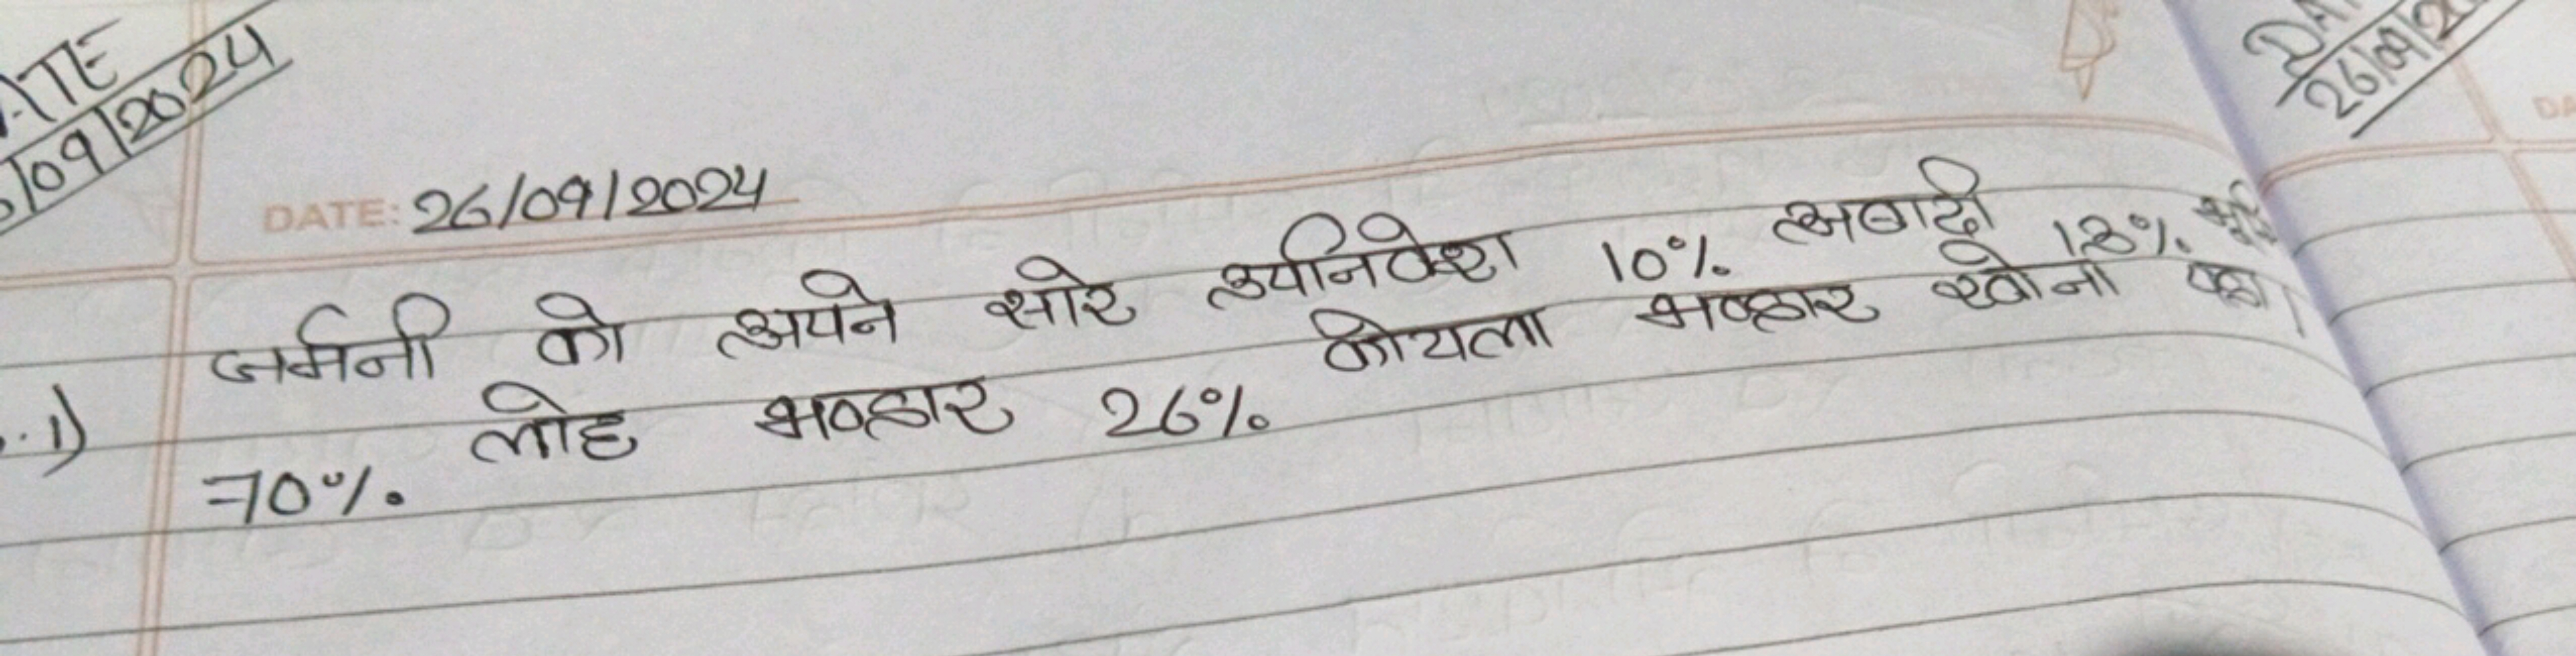 ATE
/09/2024
DATE: 26/09/2024
DA
26/09/20
DA
1) जर्मनी को अपने सारे उपनिवेश 10% अबादी 13%
70% लोह भण्डार 26% कोयला भण्डार खोना पड़ा।